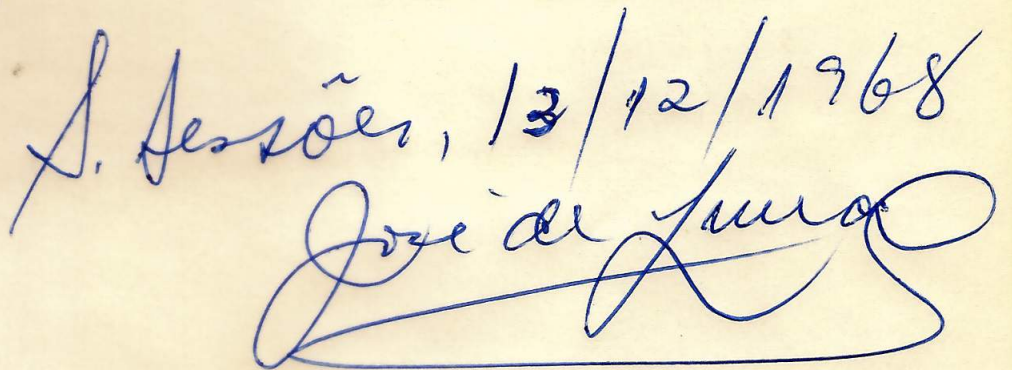 S. Sessões, 13/12/1968
José de